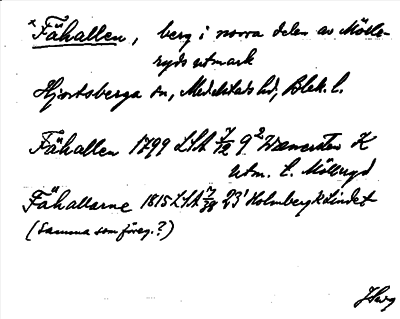 × Fähallen, berg i norra delen av Mölle-
ryds utmark
Hjortsberga sn, Medelstads hd, Blek. l.
Fähallen 1799 LSA 7/12 9² K
utm. t. Mölleryd
Fähallarne 1815 LSA 23¹ Holmberg
(samma som föreg.?)